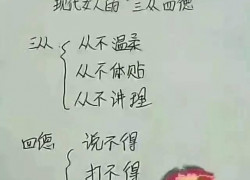 现代女人的"三从四德
三从
从不温柔
从不体贴
从不讲理
四德
说不得
打不得